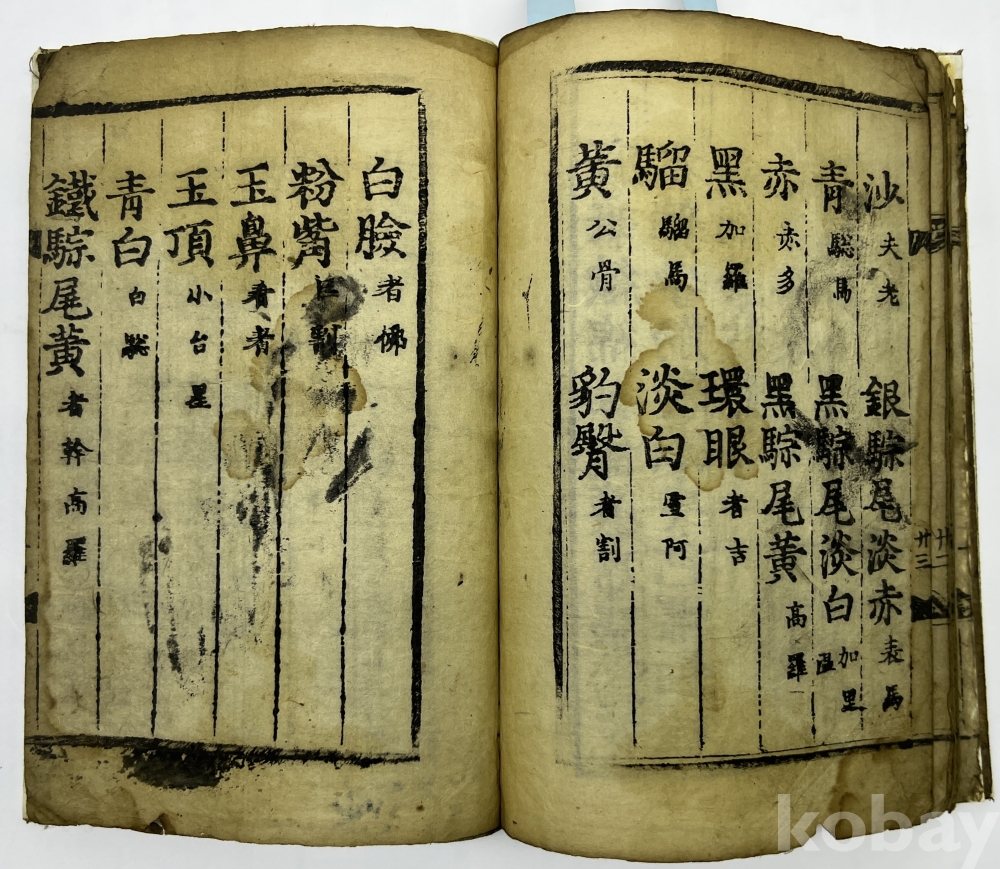 沙 夫老 銀騌尾淡赤 表馬
青 驄馬 黑騌尾淡白 加里溫
赤 赤多 黑騌尾黃 高羅
黑 加羅 環眼 者吉
騮 騮馬 淡白 雪阿
黃 公骨 豹臀 者割
白臉 者佛
粉觜 巨割
玉鼻
玉頂 小台星
青白 白驄
鐵騌尾黃 者幹高羅
廿二
廿三
kobay